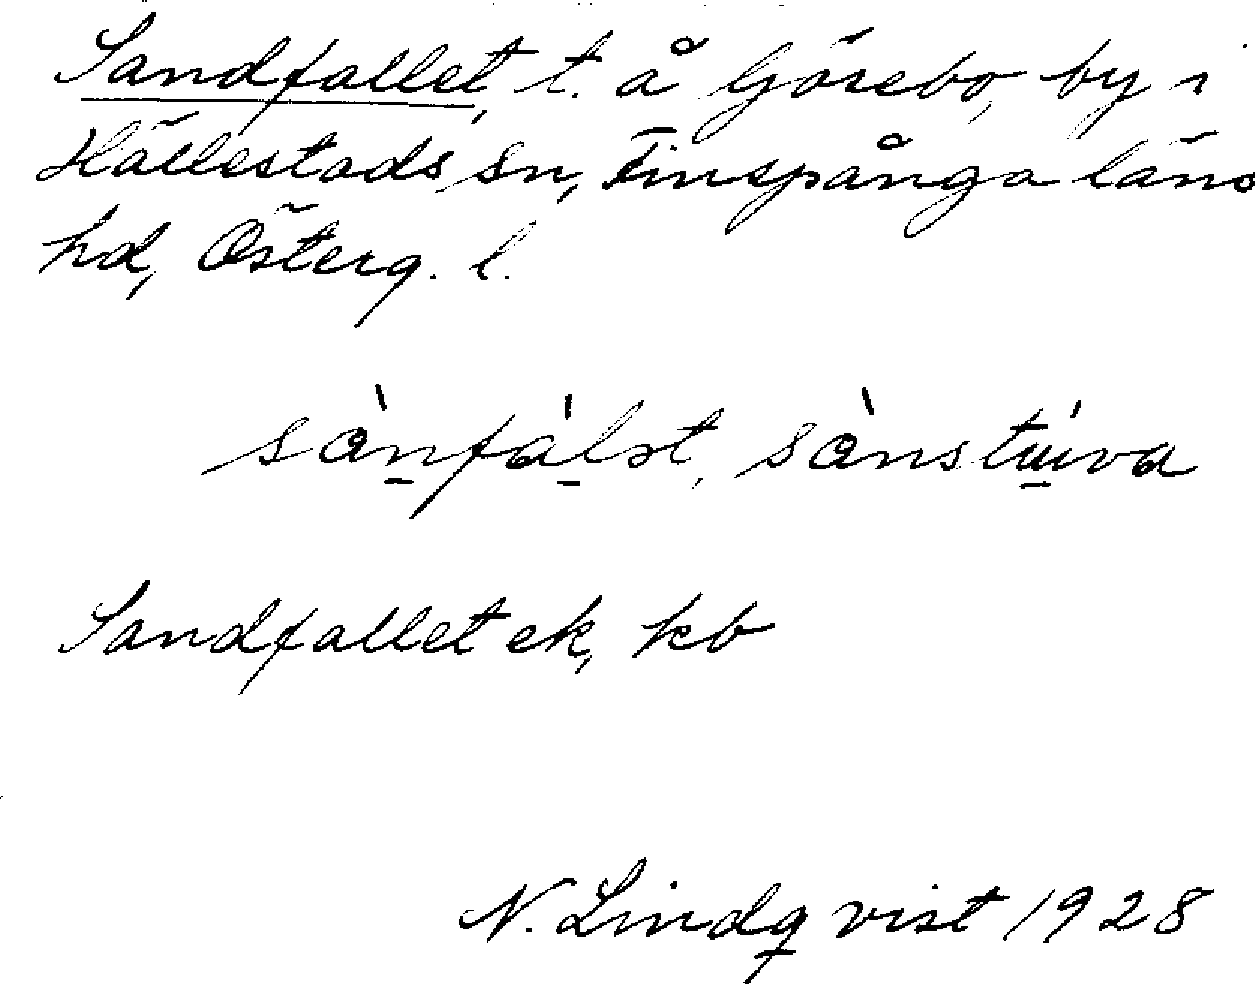 Sandfallet, t. å Görebo, by i
Hällestads sn, Finspånga läns
hd, Österg. l.
sànfálət, sànstúva
Sandfallet ek, kb
N. Lindqvist 1928